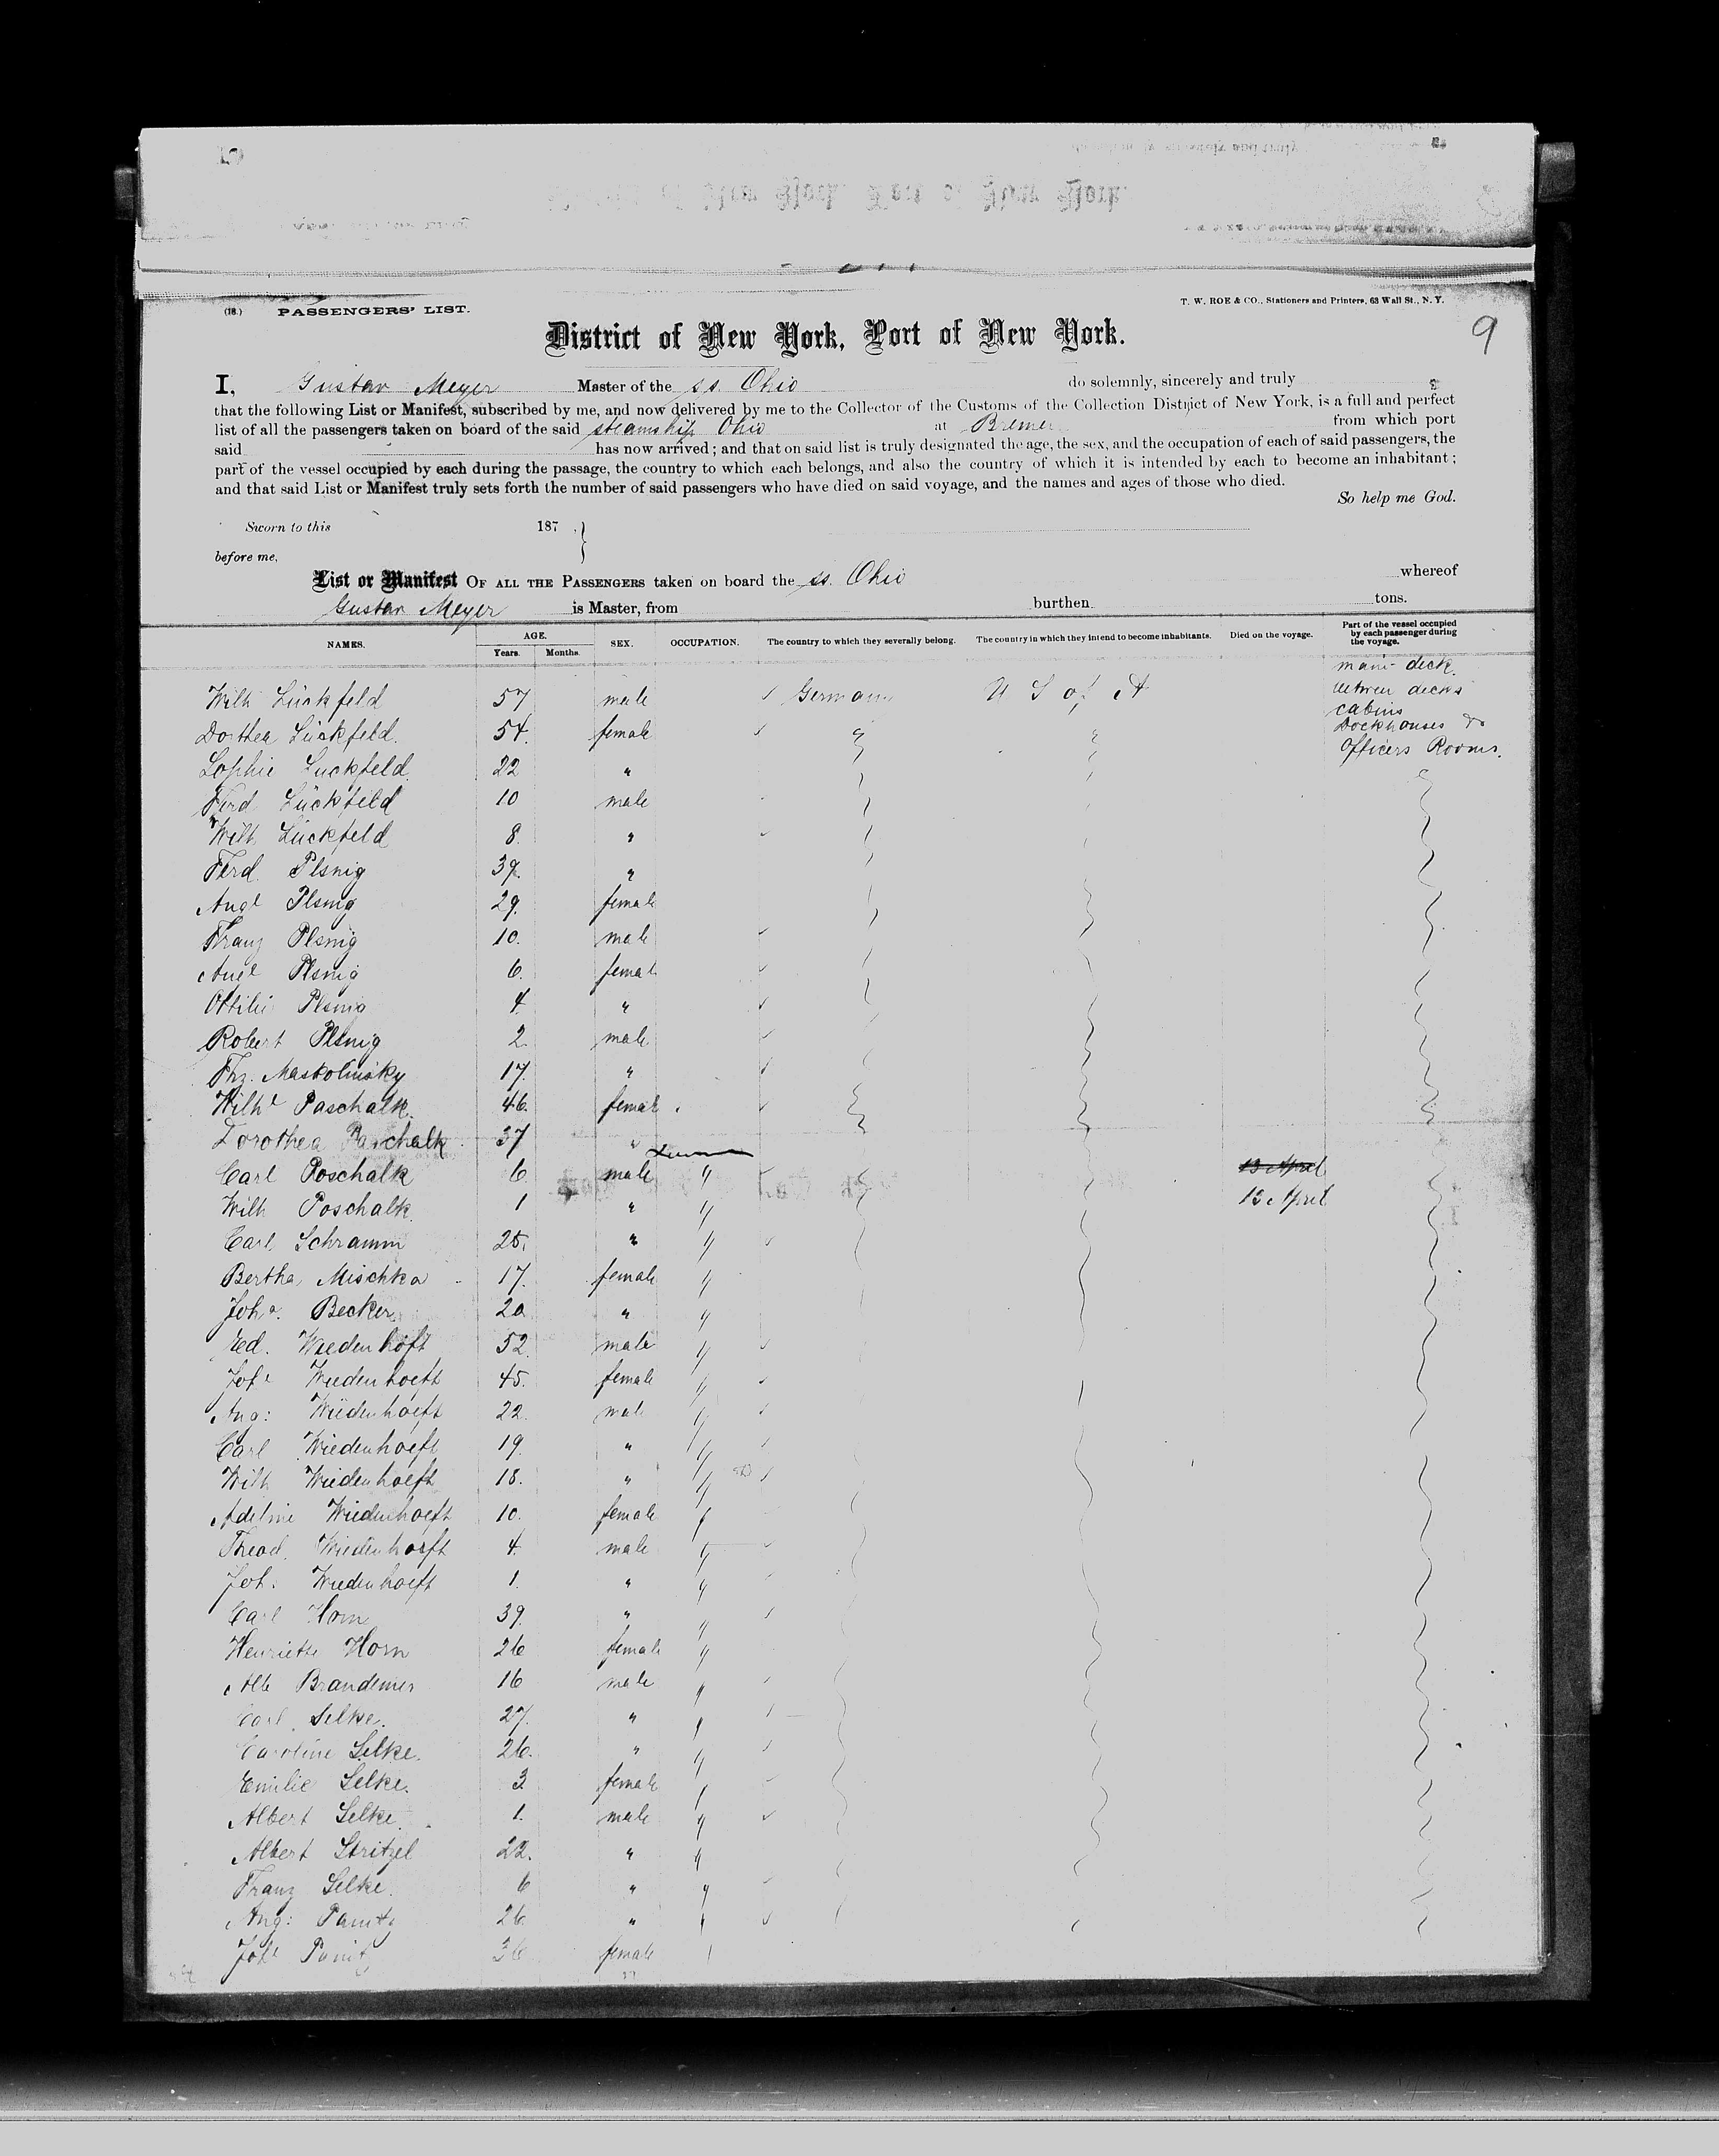 (18.) PASSENGERS' LIST.
T. W. ROE & CO., Stationers and Printers, 63 Wall St., N. Y.
9
District of New York, Port of New York.
I, Gustav Meyer Master of the ss. Ohio do solemnly, sincerely and truly
that the following List or Manifest, subscribed by me, and now delivered by me to the Collector of the Customs of the Collection District of New York, is a full and perfect
list of all the passengers taken on board of the said steamship Ohio at Bremen from which port
said has now arrived; and that on said list is truly designated the age, the sex, and the occupation of each of said passengers, the
part of the vessel occupied by each during the passage, the country to which each belongs, and also the country of which it is intended by each to become an inhabitant;
and that said List or Manifest truly sets forth the number of said passengers who have died on said voyage, and the names and ages of those who died.
So help me God.
Sworn to this 187
before me,
List or Manifest OF ALL THE PASSENGERS taken on board the ss. Ohio whereof
Gustav Meyer is Master, from burthen tons.
NAMES. AGE. Years. Months. SEX. OCCUPATION. The country to which they severally belong. The country in which they intend to become inhabitants. Died on the voyage. Part of the vessel occupied by each passenger during the voyage.
main deck
between decks
cabins
Dockhouses &
Officers Rooms.
Wilh Lückfeld 57 male Germany U S of A
Dorthea Lückfeld. 54. female "
Sophie Luckfeld. 22 "
Ferd Lückfeld 10 male
Wilh Lückfeld 8. "
Ferd. Plsnig 39. "
Augt Plsnig 29. female
Franz Plsnig 10. male
Augt Plsnig 6. female
Ottilie Plsnig 4. "
Robert Plsnig 2. male
Frz. Maskolinsky 17. "
Wilhe Paschalk. 46. female
Dorothea Paschalk 37 "
Carl Poschalk 6. male " 13 April
Wilh Poschalk. 1 " " 13 April
Carl Schramm 25. " "
Bertha Mischka 17. female "
Joha. Becker 20 " "
Ed. Wiedenhoft 52. male "
Johe Wiedenhoeft 45. female "
Aug: Wiedenhoeft 22. male "
Carl Wiedenhoeft 19. " "
Wilh Wiedenhoeft 18. " "
Adeline Wiedenhoeft 10. female "
Theod. Wiedenhoeft 4. male "
Joh. Wiedenhoeft 1. " "
Carl Horn 39. " "
Henriette Horn 26 female "
Alb Brandemer 16 male "
Carl Selke. 27. " "
Caroline Selke. 26. " "
Emilie Selke. 3 female "
Albert Selke. 1. male "
Albert Stritzel 22. " "
Franz Selke. 6 " "
Aug: 26. " "
Johe 36 female